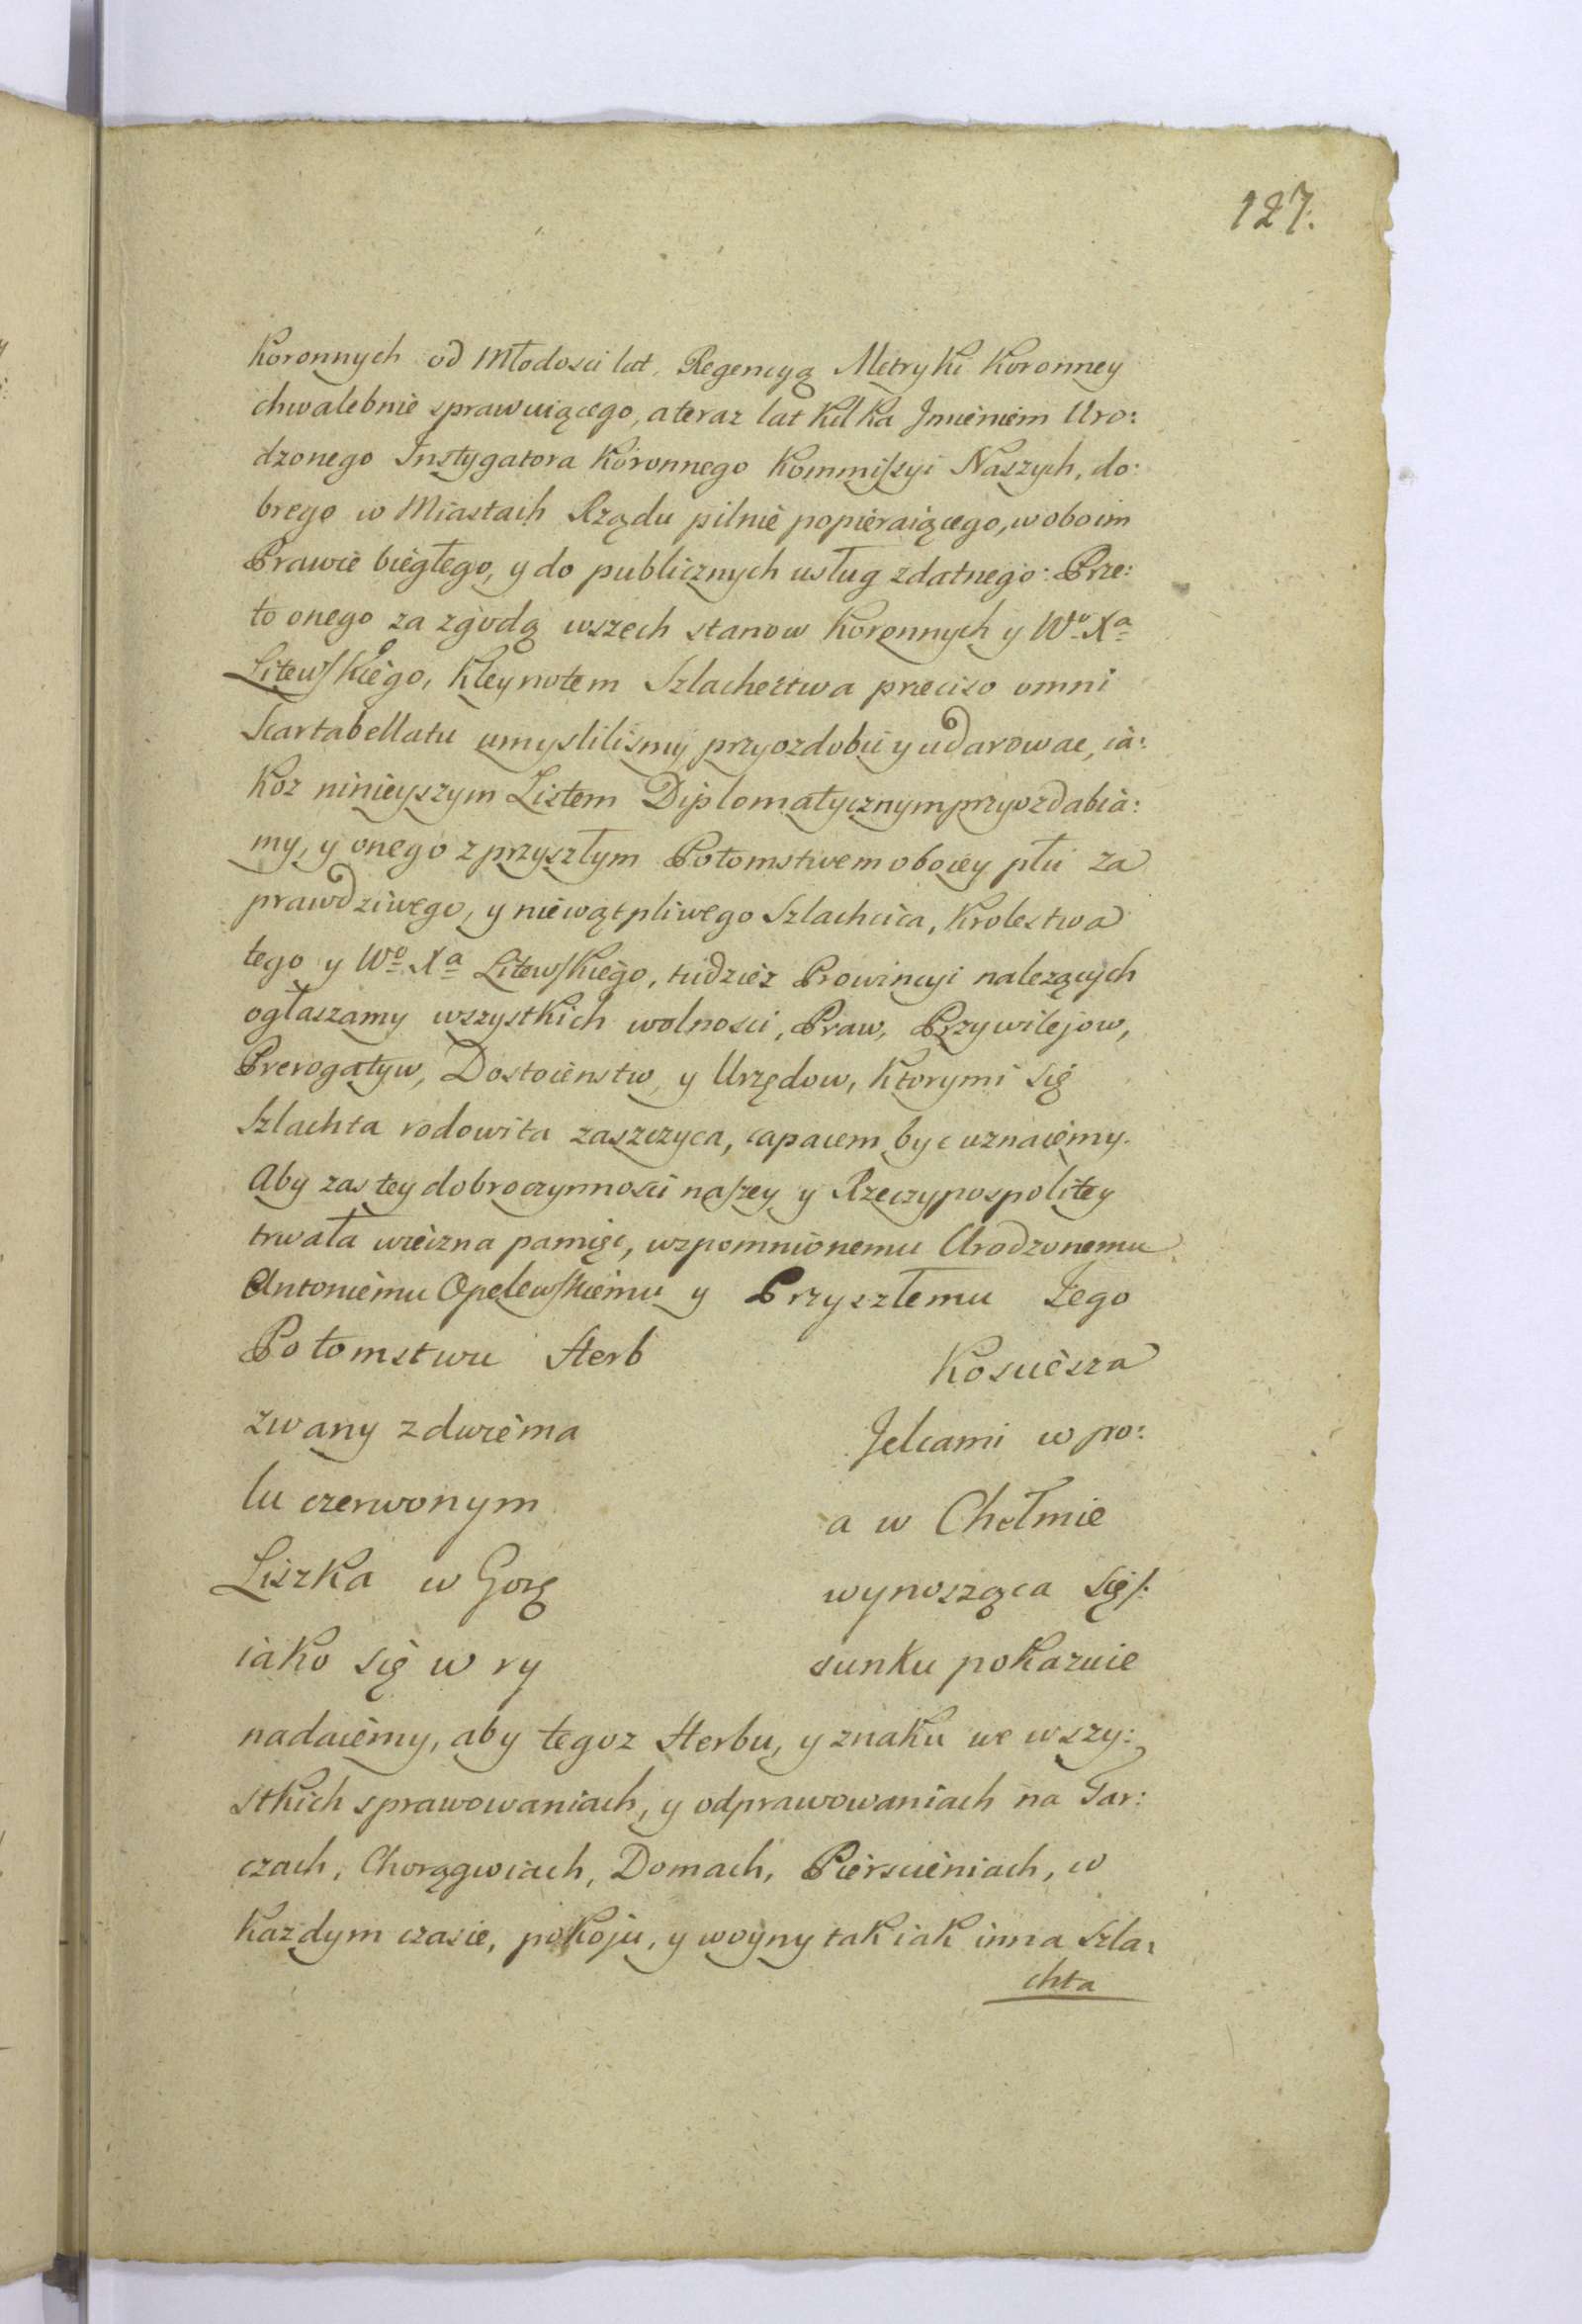 127.
Koronnych od Młodosci lat, Regencyą Metryki Koronney
chwalebnie sprawuiącego, a teraz lat kilka Jmieniem Uro:
dzonego Instygatora Koronnego Kommissyi Naszych, do:
brego w Miastach Rządu pilnie popieraiącego, w oboim
Prawie biegłego, y do publicznych usług zdatnego: Prze:
to onego za zgodą wszech stanow Koronnych y Wo Xa
Litewskiego, Kleynotem Szlachectwa preciso omni
Scartabellatu umyslilismy przyozdobić y udarowac, ia:
koz ninieyszym Listem Diplomatycznym przyozdabia:
my, y onego z przyszłym Potomstwem oboiey płci za
prawdziwego, y niewątpliwego Szlachcica, Krolestwa
tego y Wo Xa Litewskiego, tudziez Prowincyi nalezących
ogłaszamy wszystkich wolnosci, Praw, Przywilejow,
Prerogatyw, Dostoienstw y Urzędow, ktorymi się
Szlachta rodowita zaszczyca, capacem byc uznaiemy.
Aby zas tey dobroczynnosci naszey y Rzeczypospolitey
trwała wieczna pamięc, wzpomnionemu Urodzonemu
Antoniemu Opelewskiemu y Przyszłemu Jego
Potomstwu Herb Kosciesza
zwany z dwiema Jelcami w po:
lu czerwonym a w Chełmie
Liszka w Gorę wynosząca się/:
iako się w ry sunku pokazuie
nadaiemy, aby tegoz Herbu, y znaku we wszy:
stkich sprawowaniach, y odprawowaniach na Tar:
czach, Chorągwiach, Domach, Pierscieniach, w
kazdym czasie, pokoju, y woyny tak iak inna Szla:
chta